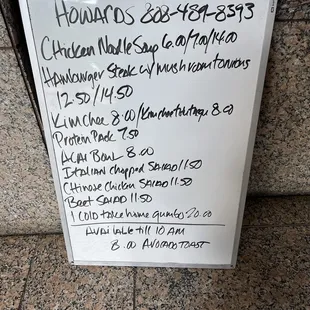 HOWARDS 808-489-8393
Chicken Noodle Soup 6.00/7.00/14.00
Hamburger Steak w/ mushroom onions
12.50/14.50
Kimchee 8.00/Kimchee 8.00
Protein Pack 7.50
ACAI BOWL 8.00
Italian Chopped SALAD 11.50
Chinese Chicken SALAD 11.50
Beet SALAD 11.50
1 COLD take home gumbo 20.00
AVAILABLE till 10 AM
8.00 AVOCADO TOAST